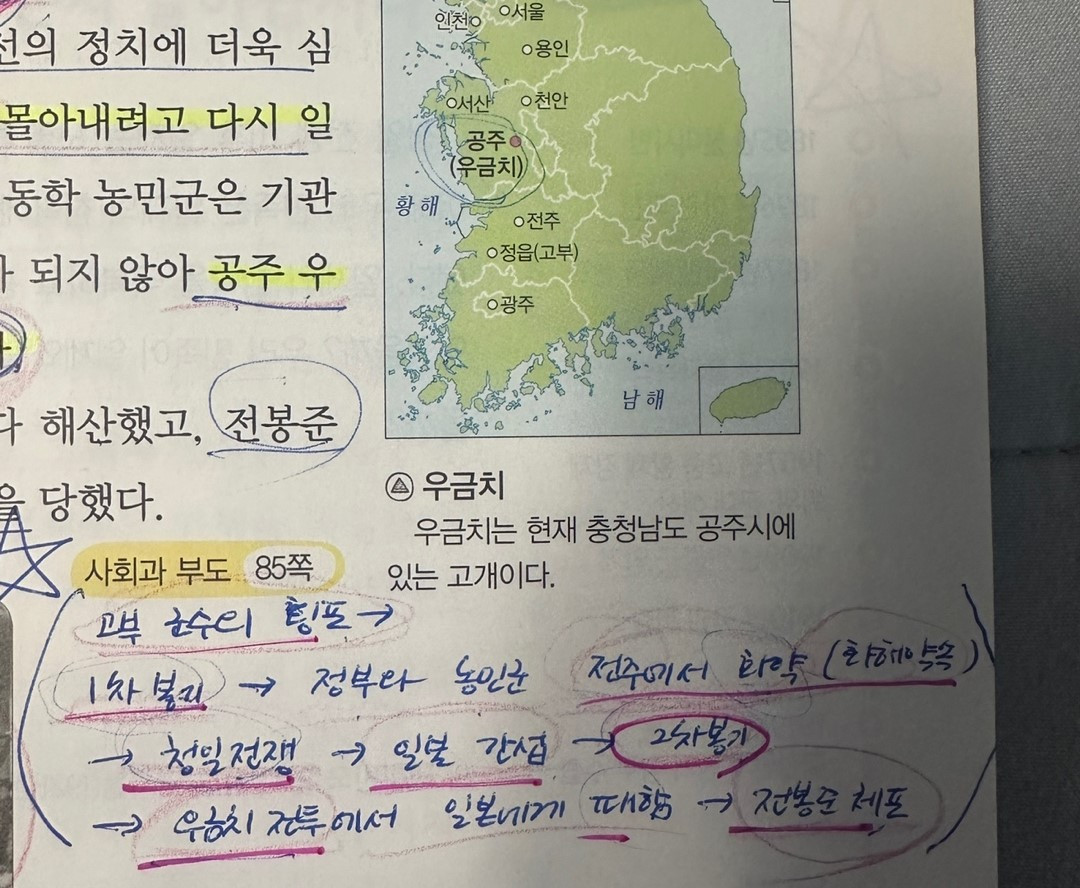 선의 정치에 더욱 심
몰아내려고 다시 일
동학 농민군은 기관
되지 않아 공주 우
다 해산했고, 전봉준
을 당했다.
사회과 부도 85쪽
서울
인천
용인
서산
천안
공주
(우금치)
황해
전주
정읍(고부)
광주
남해
우금치
우금치는 현재 충청남도 공주시에
있는 고개이다.
고부 군수의 횡포 →
1차 봉기 → 정부와 농민군 전주에서 화약 (화해약속)
→ 청일전쟁 → 일본 간섭 → 2차봉기
→ 우금치 전투에서 일본에게 패함 → 전봉준 체포